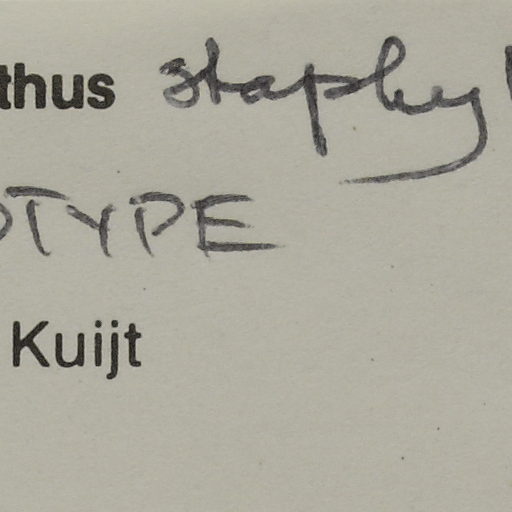 thus staphyl
OTYPE
Kuijt